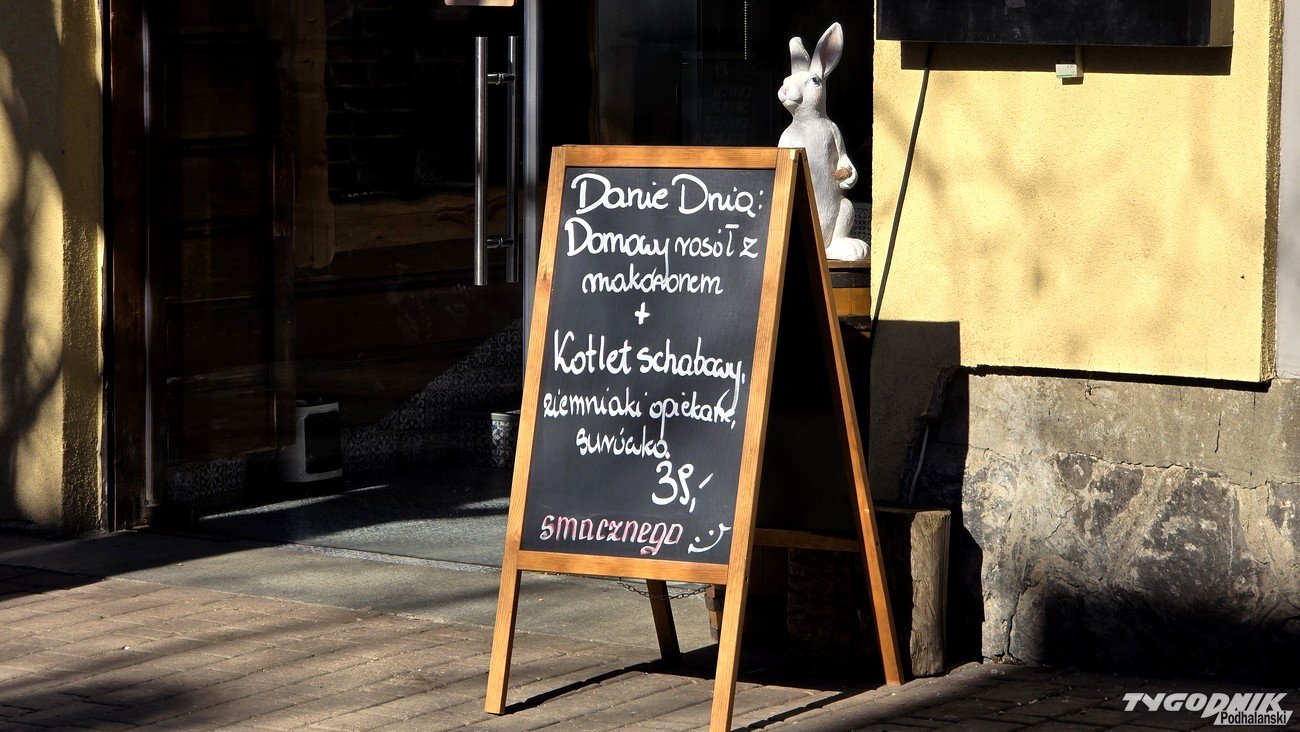 Danie Dnia:
Domowy rosół z
makaronem
+
Kotlet schabowy,
ziemniaki opiekane,
surówka
39,-
smacznego :)
TYGODNIK
Podhalański